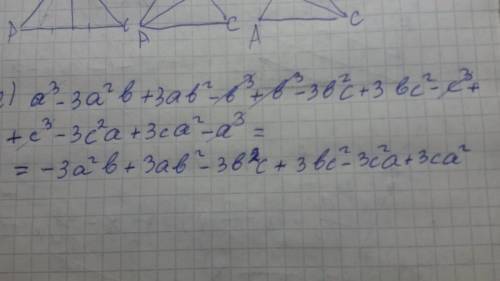 A C A C A C
2) a³ - 3a²b + 3ab² - b³ + b³ - 3b²c + 3bc² - c³ +
+ c³ - 3c²a + 3ca² - a³ =
= -3a²b + 3ab² - 3b²c + 3bc² - 3c²a + 3ca²